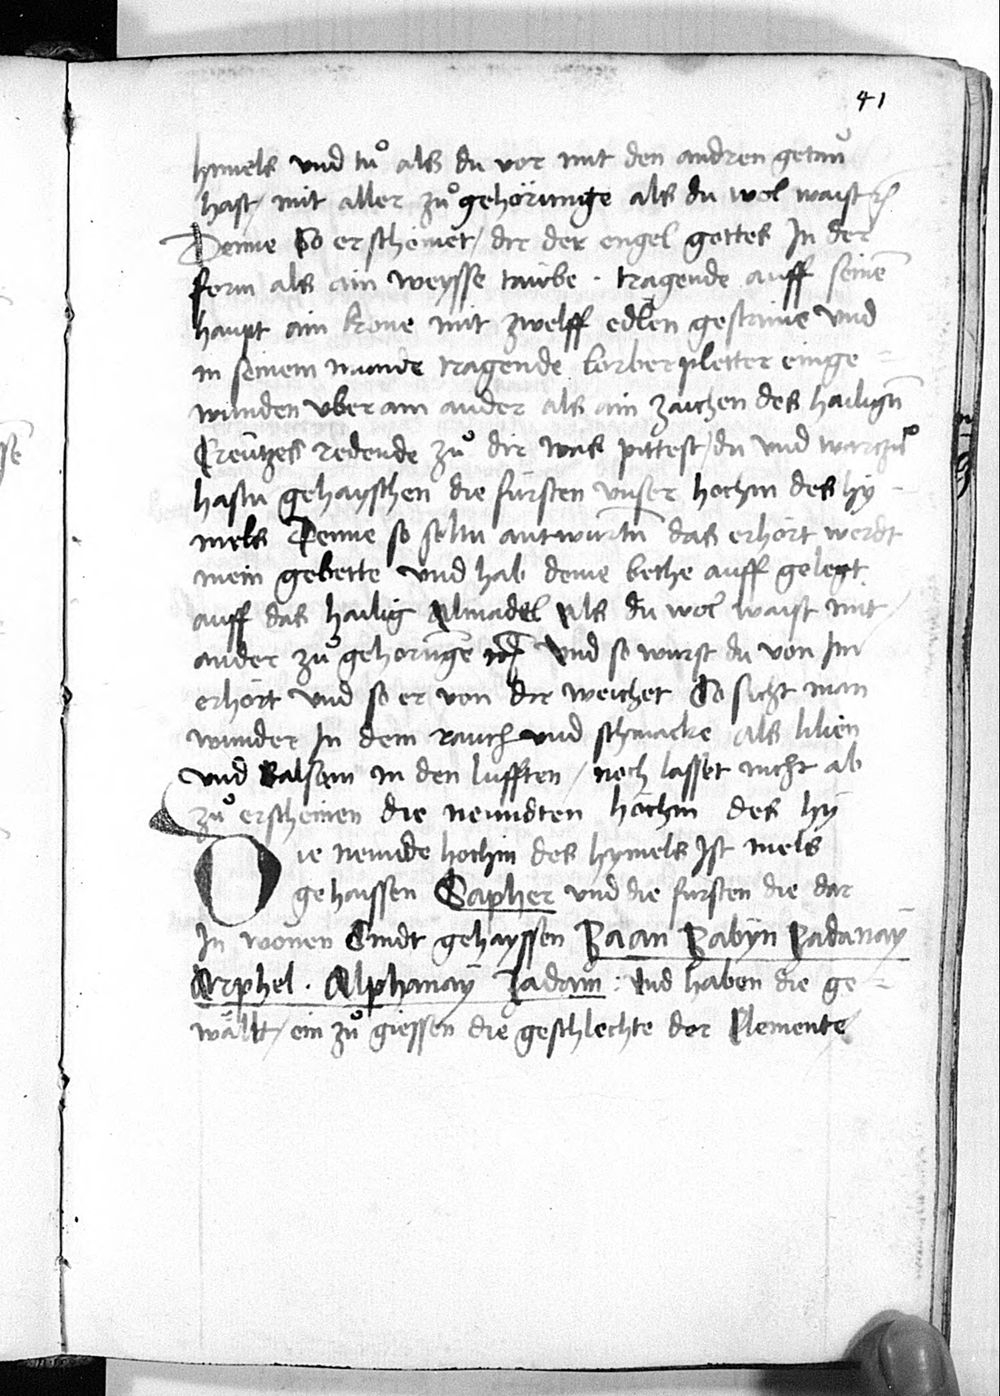 41
hymels vnd tuͦ als du vor mit den andren getan
hast / mit aller zuͦgehörunge als du wol waist
Denne So erscheinet / dir der engel gottes In der
form als ain weysse taube . tragende auff seinē
haupt ain krone mit zwelff edlen gestaine vnd
in seinem munde tragende lorberpletter einge-
wunden vber ain ander als ain zaichen des hailigñ
Creützes redende zuͦ dir was pittest / du vnd warzuͦ
hastu gehayschen die fürsten vnser hochin des hy-
mels Denne so soltu antwürtñ das erhört werdt
mein gebette vnd hab deine bethe auff gelegt
auff das hailig Almadel Als du wol waist mit
ander zuͦ gehorūge vnd so würst du von Im
erhört vnd so er von dir weichet So sicht man
wunder In dem rauch vnd schmacke als lilien
vnd Balsam in den lufften / noch lasset nicht ab
zuͦ erscheinen die neundten höchin des hÿ
Die neunde hochin des hymels Ist mels
gehaissen Sapher vnd die fürsten die dar
In wonen Sindt gehayssen Paan Pabÿn Padanaÿ
Arphel . Alphanaÿ Jadram : vnd haben die ge-
wällt / ein zuͦ giessen die geschlechte der Elemente